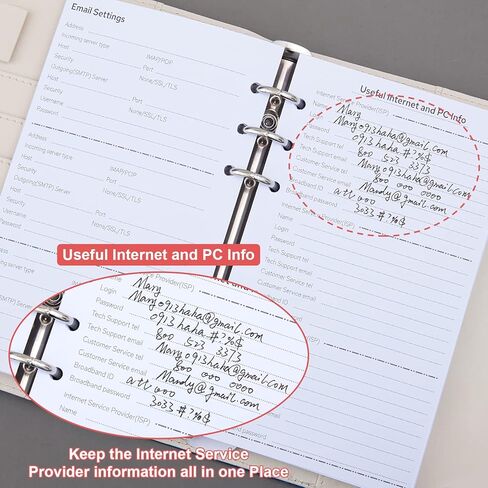 Email Settings
Incoming server type IMAP/POP
Host Port
Security None/SSL/TLS
Outgoing(SMTP) Server
Host Port
Security None/SSL/TLS
Username
Password
Host
Incoming server type IMAP/POP
Host Port
Security None/SSL/TLS
Outgoing(SMTP) Server
Host Port
Security None/SSL/TLS
Username
Password
Useful Internet and PC Info
Internet Service Provider(ISP)
Name Mary
Login Mary0913haha@gmail.com
Password 0913haha #?%$
Tech Support tel 800 523 3373
Tech Support email Mary0913haha@gmail.com
Customer Service tel 800 000 0000
Customer Service email Mandy@gmail.com
Broadband ID att 000
Broadband password 3033 #?%$
Internet Service Provider(ISP)
Name
Login
Password
Tech Support tel
Tech Support email
Customer Service tel
Customer Service email
Broadband ID
Broadband password
Useful Internet and PC Info
Provider(ISP)
Name Mary
Login Mary0913haha@gmail.com
Password 0913haha #?%$
Tech Support tel 800 523 3373
Tech Support email Mary0913haha@gmail.com
Customer Service tel 800 000 0000
Customer Service email Mandy@gmail.com
Broadband ID att 000
Broadband password 3033 #?%$
Internet Service Provider(ISP)
Name
Keep the Internet Service
Provider information all in one Place